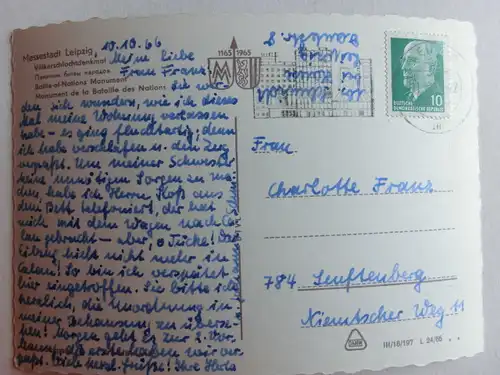 Messestadt Leipzig
Völkerschlachtdenkmal
Памятник битвы народов
Battle-of-Nations Monument
Monument de la Bataille des Nations
10.10.66
Meine liebe
Frau Franz!
Sie wer-
den sich wundern, wie ich dieses
Mal meine Wohnung verlassen
habe - es ging fluchtartig; denn
ich habe verschlafen u. den Zug
verpaßt. Um meiner Schwester
keine unnötigen Sorgen zu ma-
chen, habe ich Herrn aus
dem Bett telefoniert, der hat
mich mit dem Wagen nach Ca-
lau gebracht - aber, o Tücke! Der
Eilzug hielt nicht mehr in
Calau! So bin ich verspätet
hier eingetroffen. Sie bitte ich
herzlich, die Unordnung in
meiner Behausung zu überse-
hen! Morgen geht es zur 2. Vor-
die erste haben wir ver-
paßt. Viele herzl. Grüße! Ihre
1165 1965
M
bei
Leipzig
DEUTSCHE
DEMOKRATISCHE REPUBLIK
10
Frau
Charlotte Franz
784 Senftenberg
Niemtscher Weg 11
III/18/197 L 24/66